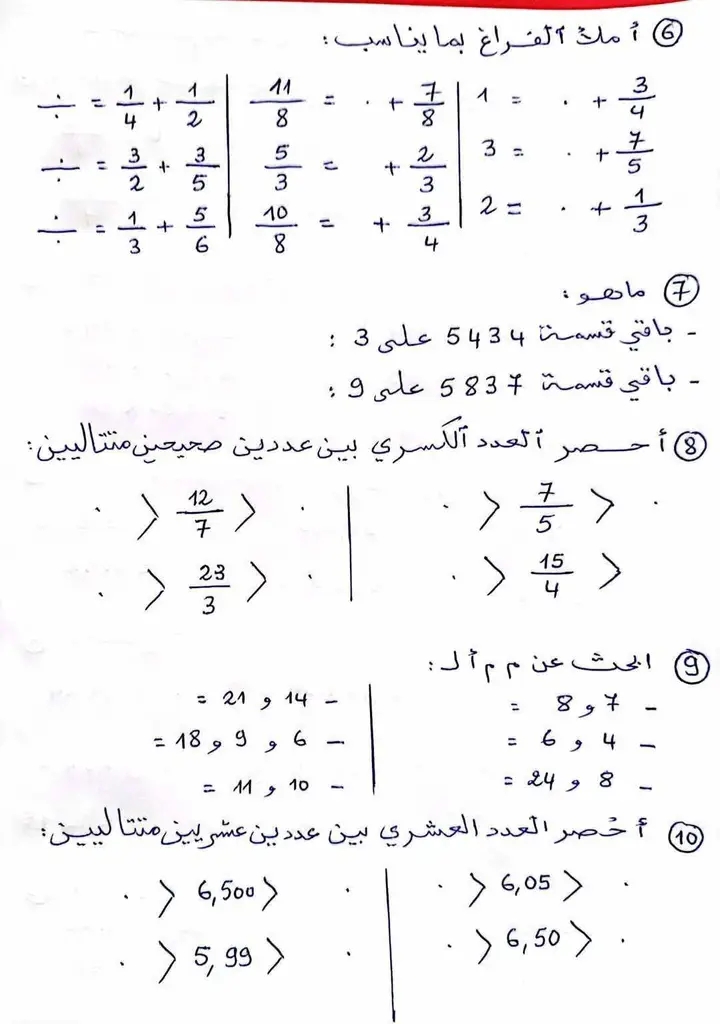 ⑥ أملأ الفراغ بما يناسب:
3/4 + . = 1 | 7/8 + . = 11/8 | 1/2 + 1/4 = ÷
7/5 + . = 3 | 2/3 + = 5/3 | 3/5 + 3/2 = ÷
1/3 + . = 2 | 3/4 + = 10/8 | 5/6 + 1/3 = ÷
⑦ ماهو:
- باقي قسمة 5434 على 3 :
- باقي قسمة 5837 على 9 :
⑧ أحصر العدد الكسري بين عددين صحيحين متتاليين:
. < 7/5 < . | . < 12/7 < .
< 15/4 < . | . < 23/3 < .
⑨ ابحث عن م م أ لـ:
- 7 و 8 = | - 14 و 21 =
- 4 و 6 = | - 6 و 9 و 18 =
- 8 و 24 = | - 10 و 11 =
⑩ أحصر العدد العشري بين عددين عشريين متتاليين:
. < 6,05 < . | . < 6,500 < .
. < 6,50 < . | . < 5,99 < .